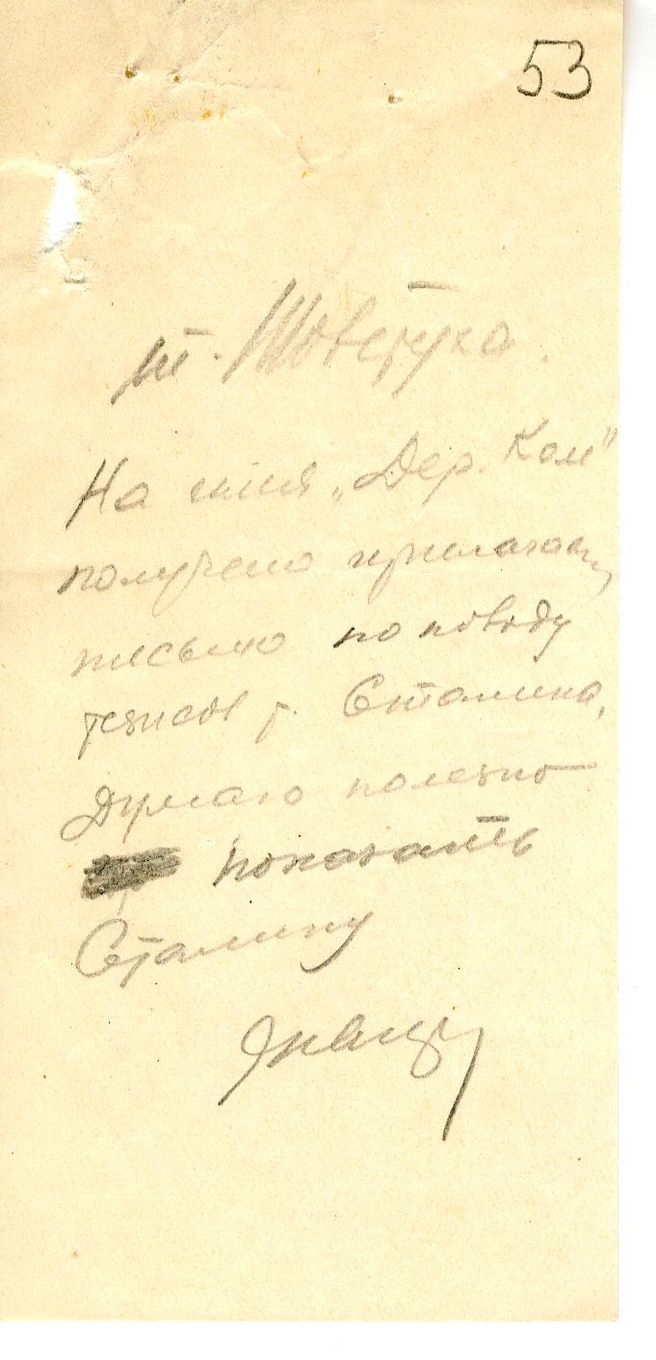 53
т. Товстуха.
На имя „Дер. Ком"
получено прилагаем.
письмо по поводу
тезисов т. Сталина.
Думаю полезно
показать
Сталину